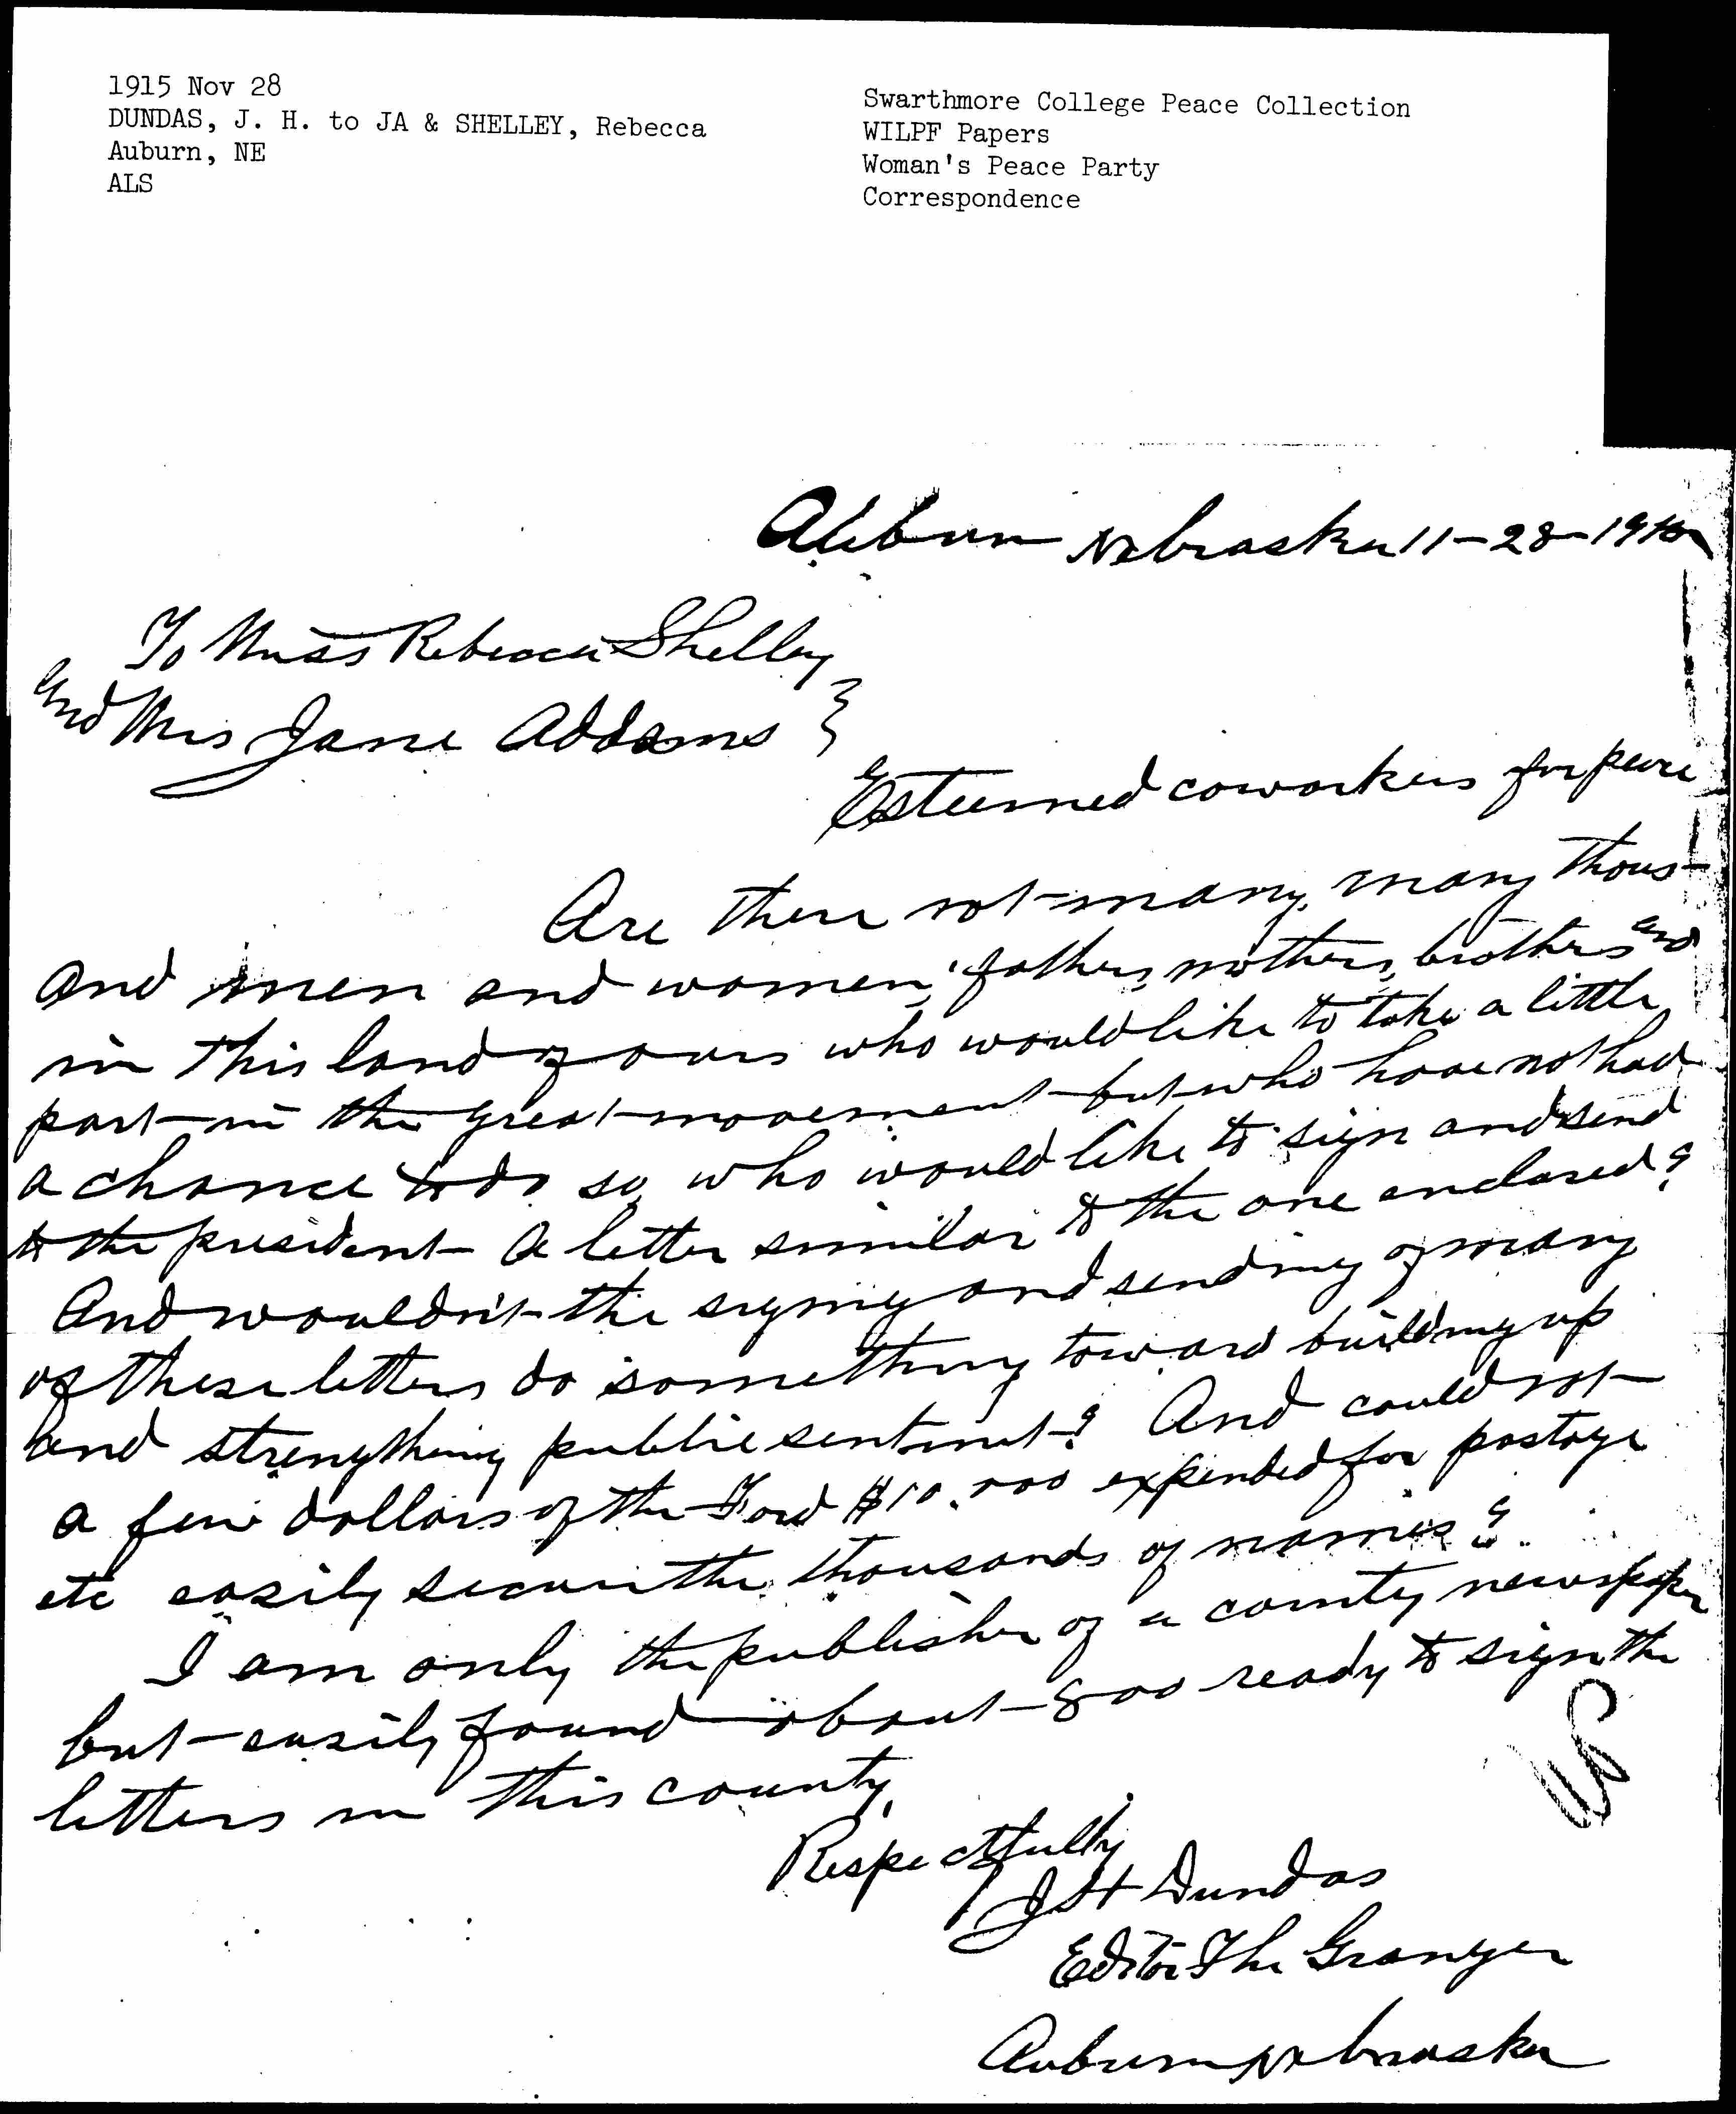 1915 Nov 28
DUNDAS, J. H. to JA & SHELLEY, Rebecca
Auburn, NE
ALS
Swarthmore College Peace Collection
WILPF Papers
Woman's Peace Party
Correspondence
Auburn Nebraska 11-28-1915
To Miss Rebecca Shelley
and Mrs Jane Addams }
Esteemed coworkers for peace
Are there not many, many thous-
and men and women, fathers, mothers, brothers and
in this land of ours who would like to take a little
part in the great movement but who have not had
a chance to do so, who would like to sign and send
to the president a letter similar to the one enclosed?
And wouldn't the signing and sending of many
of these letters do something toward building up
and strengthing public sentiment? And could not
a few dollars of the Ford $10.000 expended for postage
etc easily secure the thousands of names?
I am only the publisher of a county newspaper
but easily found about 800 ready to sign the
letters in this county.
Respectfully
J H Dundas
Editor The Granger
Auburn Nebraska